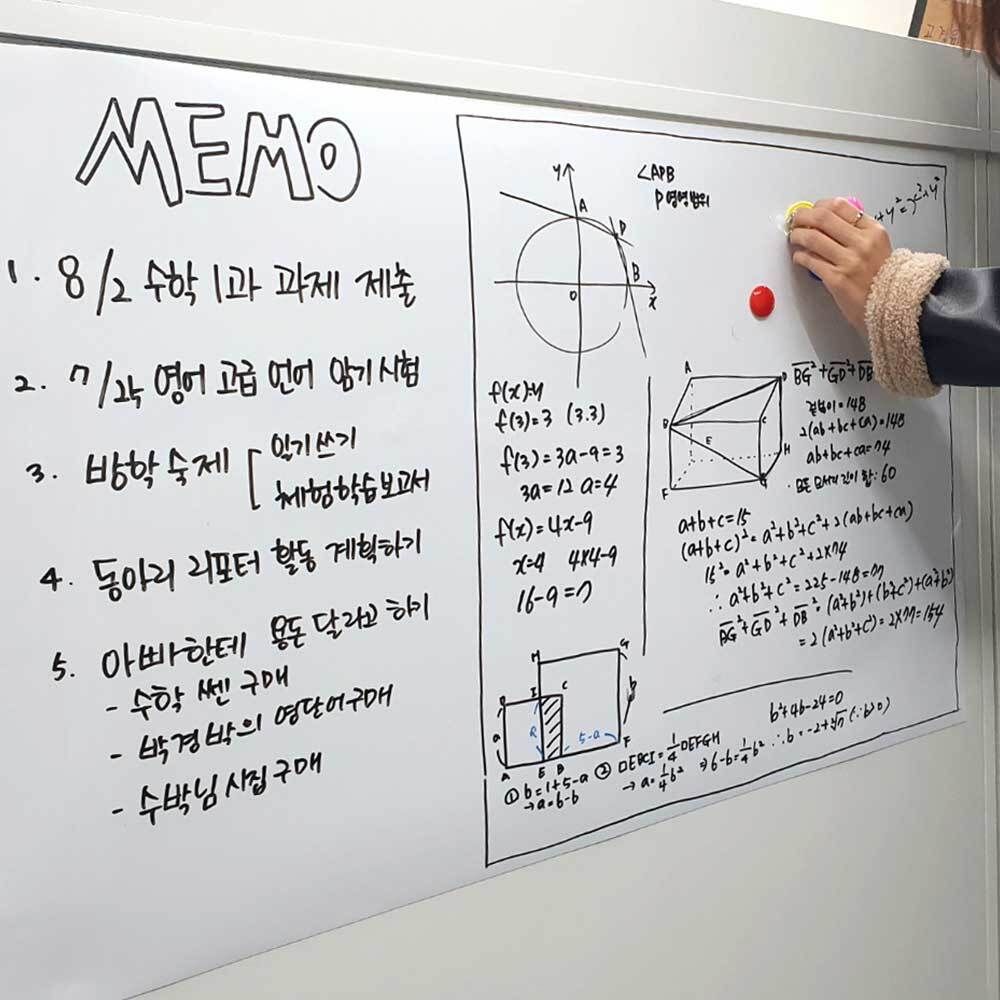 MEMO
1. 8/2 수학 1과 과제 제출
2. 7/24 영어 고급 언어 암기 시험
3. 방학 숙제 [ 일기쓰기
체험학습보고서
4. 동아리 리포터 활동 계획하기
5. 아빠한테 용돈 달라고 하기
- 수학 쎈 구매
- 박경박의 영단어구매
- 수박님 시집 구매
y
A
D
B
0
x
∠APB
f(x)=y
f(3)=3 (3.3)
f(3)=3a-9=3
3a=12 a=4
f(x)=4x-9
x=4 4x4-9
16-9=7
A
D
B
C
E
H
F
G
BG²+GD²+DB
겉넓이=148
2(ab+bc+ca)=148
ab+bc+ca=74
모든 모서리 길이 합:60
a+b+c=15
(a+b+c)²=a²+b²+c²+2(ab+bc+ca)
15²=a²+b²+c²+2x74
∴ a²+b²+c²=225-148=77
BG²+GD²+DB²=(a²+b²)+(b²+c²)+(a²+b²)
=2(a²+b²+c²)=2x77=154
H
G
I
C
b
a
5-a
A
E
B
F
① b=1+5-a
→a=6-b
② □EBCI=1/4□EFGH
→ a=1/4b²
⇒6-b=1/4b²
b²+4b-24=0
∴b=-2+2√7 (∵b>0)